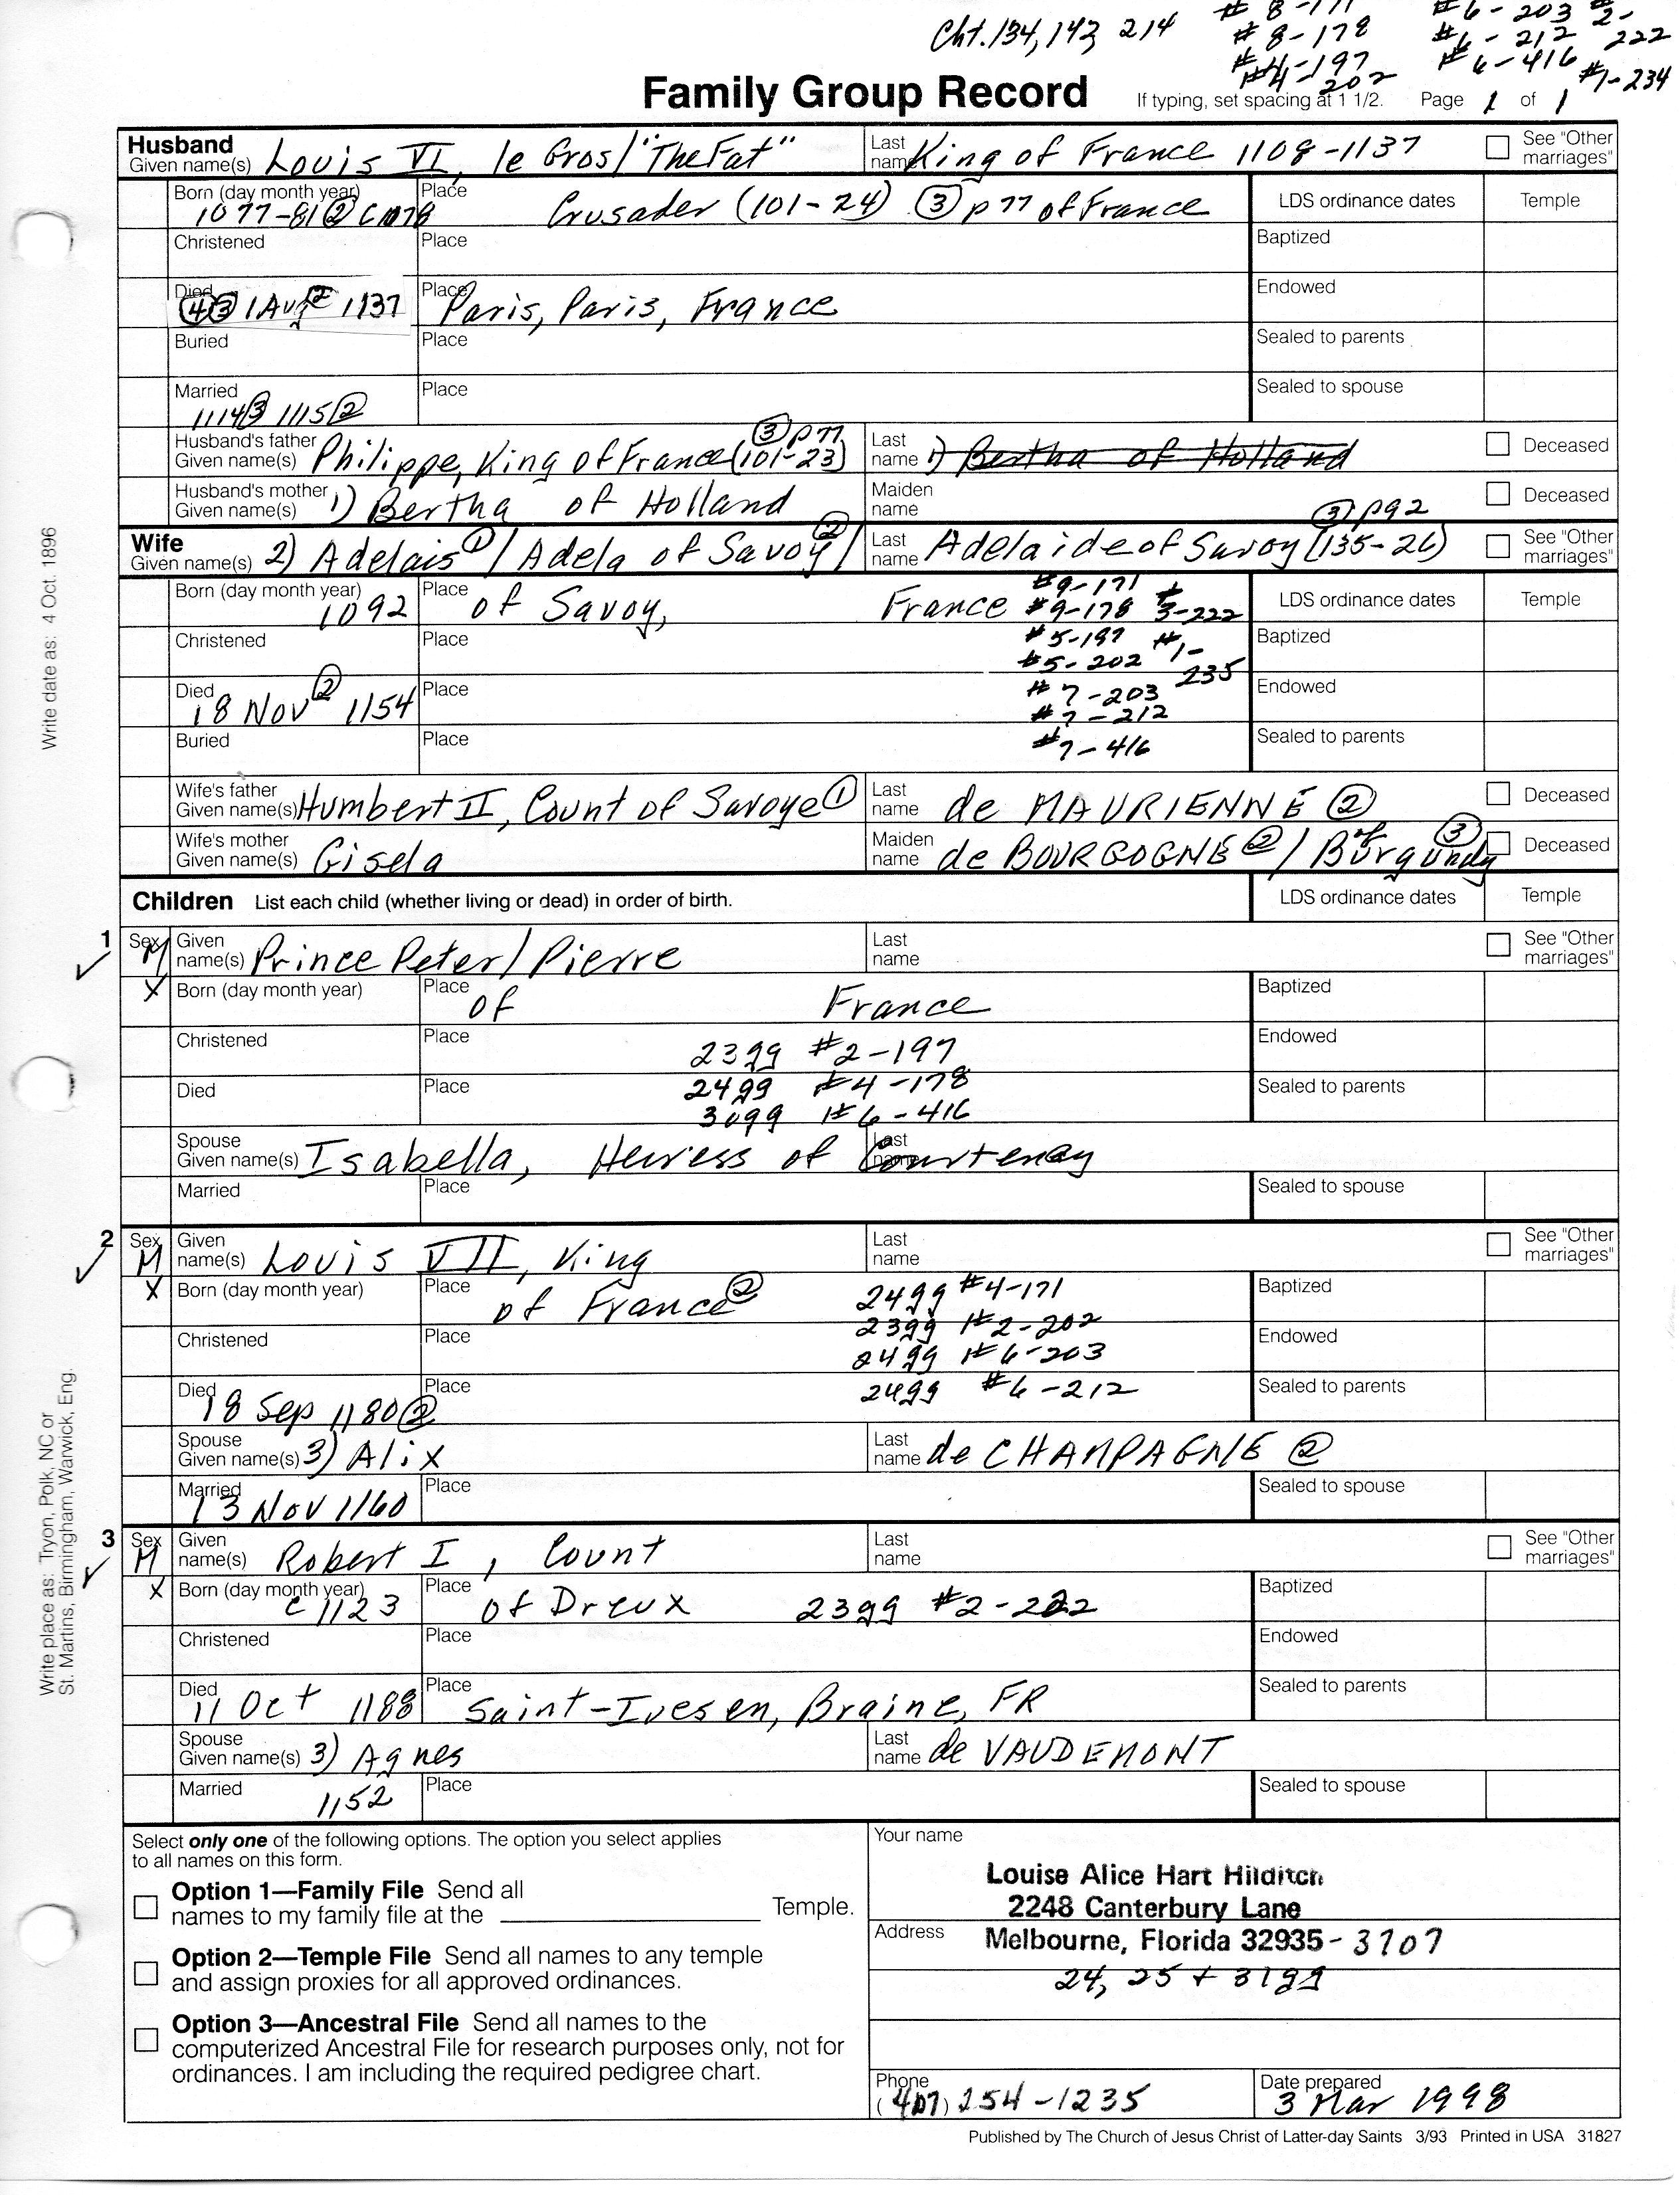 Cht. 134, 142, 214
# 8-171
# 8-178
# 4-197
#4-202
#6-203 #2-
#6-212 222
#6-416
#1-234
Family Group Record
If typing, set spacing at 1 1/2. Page 1 of 1
Husband
Given name(s) Louis VI, le Gros/"The Fat" Last name King of France 1108-1137 See "Other marriages"
Born (day month year) 1077-81 ② C1078 Place Crusader (101-24) ③ p77 of France LDS ordinance dates Temple
Christened Place Baptized
Died ④③ 1 Aug ② 1137 Place Paris, Paris, France Endowed
Buried Place Sealed to parents
Married 1114③ 1115② Place Sealed to spouse
Husband's father Given name(s) Philippe, King of France (101-23) ③ p77 Last name 1) Bertha of Holland Deceased
Husband's mother Given name(s) 1) Bertha of Holland Maiden name Deceased
Wife
Given name(s) 2) Adelais① / Adela of Savoy② / Last name Adelaide of Savoy (135-26) ③ p92 See "Other marriages"
Born (day month year) 1092 Place of Savoy, France LDS ordinance dates Temple
#9-171
#9-178 #3-222
#5-197 #1-
#5-202 235
#7-203
#7-212
#7-416
Christened Place Baptized
Died 18 Nov② 1154 Place Endowed
Buried Place Sealed to parents
Wife's father Given name(s) Humbert II, Count of Savoye① Last name de MAURIENNE ② Deceased
Wife's mother Given name(s) Gisela Maiden name de BOURGOGNE② / of Burgundy ③ Deceased
Children List each child (whether living or dead) in order of birth. LDS ordinance dates Temple
1 Sex M Given name(s) Prince Peter/Pierre Last name See "Other marriages"
X Born (day month year) Place of France Baptized
Christened Place 23gg #2-197 Endowed
Died Place 24gg #4-178 Sealed to parents
30gg #6-416
Spouse Given name(s) Isabella, Heiress of Courtenay Last name
Married Place Sealed to spouse
2 Sex M Given name(s) Louis VII, King Last name See "Other marriages"
X Born (day month year) Place of France② 24gg #4-171 Baptized
23gg #2-202
Christened Place 24gg #6-203 Endowed
Died 18 Sep 1180② Place 24gg #6-212 Sealed to parents
Spouse Given name(s) 3) Alix Last name de CHAMPAGNE ②
Married 13 Nov 1160 Place Sealed to spouse
3 Sex M Given name(s) Robert I, Count Last name See "Other marriages"
X Born (day month year) c 1123 Place of Dreux 23gg #2-222 Baptized
Christened Place Endowed
Died 11 Oct 1188 Place Saint-Ivesen, Braine, FR Sealed to parents
Spouse Given name(s) 3) Agnes Last name de VAUDEMONT
Married 1152 Place Sealed to spouse
Select only one of the following options. The option you select applies
to all names on this form.
Option 1—Family File Send all
names to my family file at the Temple.
Option 2—Temple File Send all names to any temple
and assign proxies for all approved ordinances.
Option 3—Ancestral File Send all names to the
computerized Ancestral File for research purposes only, not for
ordinances. I am including the required pedigree chart.
Your name
Louise Alice Hart Hilditch
2248 Canterbury Lane
Address Melbourne, Florida 32935-3707
24, 25 + 31gg
Phone (407) 254-1235 Date prepared 3 Mar 1998
Published by The Church of Jesus Christ of Latter-day Saints 3/93 Printed in USA 31827
Write date as: 4 Oct. 1896
Write place as: Tryon, Polk, NC or
St. Martins, Birmingham, Warwick, Eng.